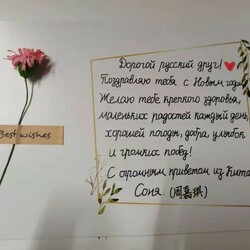 Дорогой русский друг!
Поздравляю тебя с Новым годом
Желаю тебе крепкого здоровья,
маленьких радостей каждый день,
хорошей погоды, добра, улыбок
и громких побед!
С огромным приветом из Кита
Соня. (周嘉琪)
Best wishes